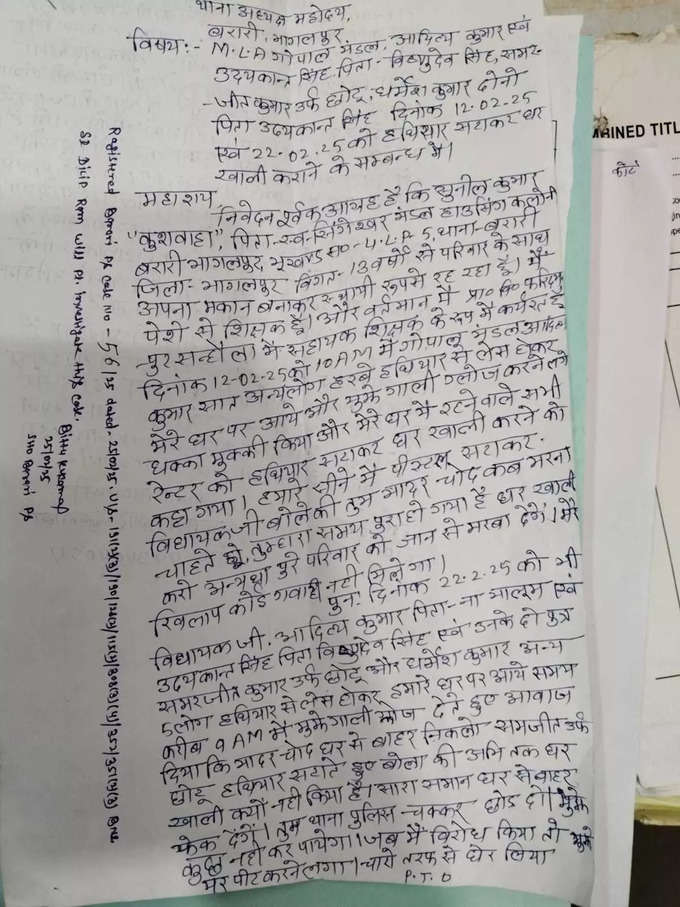 थाना अध्यक्ष महोदय,
बरारी, भागलपुर,
विषय:- M.L.A गोपाल मंडल, आदित्य कुमार एवं
उदयकान्त सिंह पिता - विष्णुदेव सिंह, समर-
-जीत कुमार उर्फ छोटू, धर्मेश कुमार दोनो
पिता उदयकान्त सिंह दिनांक 12.02.25
एवं 22.02.25 को हथियार सटाकर घर
खाली कराने के सम्बन्ध में।
महाशय,
निवेदन पूर्वक आग्रह है कि सुनील कुमार
"कुशवाहा", पिता-स्व. सिंगेश्वर मंडल हाउसिंग कलोनी
बरारी भागलपुर, भूखण्ड सं०-4.L.A 5, थाना-बरारी
जिला- भागलपुर विगत-13 वर्षों से परिवार के साथ
अपना मकान बनाकर स्थायी रूपसे रह रहा है। मैं
पेशे से शिक्षक हूँ। और वर्तमान में प्रा०
-पुर सन्हौला में सहायक शिक्षक के रूप में कार्यरत हूँ
दिनांक 12-02-25 को 10 AM में गोपाल मंडल आदित्य
कुमार सात अन्यलोग हरबे हथियार से लेस होकर
मेरे घर पर आये और मुझे गाली गलोज करने लगे
धक्का मुक्की किया और मेरे घर में रहने वाले सभी
रेन्टर को हथियार सटाकर घर खाली करने को
कहा गया। हमारे सीने में पीस्टल सटाकर
विधायक जी बोले की तुम मादर-चोद कब मरना
-चाहते हो, तुम्हारा समय पुरा हो गया है घर खाली
करो अन्यथा पुरे परिवार को जान से मरवा देगें। मेरे
खिलाप कोई गवाही नहीं मिलेगा।
पुन: दिनांक 22.2.25 को भी
विधायक जी, आदित्य कुमार पिता-ना मालूम एवं
उदयकान्त सिंह पिता विष्णुदेव सिंह एवं उनके दो पुत्र
समरजीत कुमार उर्फ छोटू और धर्मेश कुमार अन्य
5 लोग हथियार से लेस होकर हमारे घर पर आये समय
करीब 9 AM में मुझे गाली गलोज देते हुए आवाज
दिया कि मादर-चोद घर से बाहर निकलो समरजीत उर्फ
छोटू हथियार सटाते हुए बोला की अभि तक घर
खाली क्यों नही किया है। सारा समान घर से बाहर
फेक देंगें। तुम थाना पुलिस -चक्कर छोड दो। मुझे
कुछ नही कर पायेगा। जब मैं विरोध किया तो मुझे
मार पीट करने लगा। चारो तरफ से घेर लिया
P.T.O
Registered Barari PS case No - 56/25 dated - 25/02/25 U/S -
SI Dilip Ram will pl. investigate this case.
25/02/25
SHO Barari PS
MINED TITL
कोर्ट